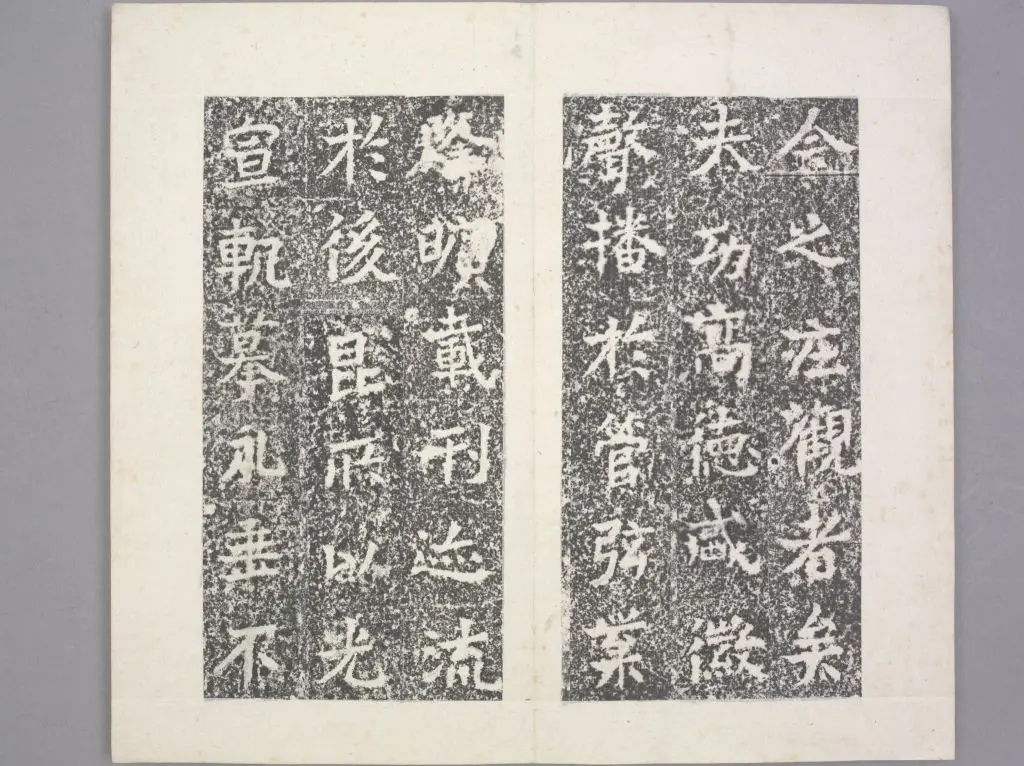 今之庄觀者矣
夫功高德盛徽
聲播於管弦業
隆曠載刊迹流
於後昆所以光
宣軌摹永垂不